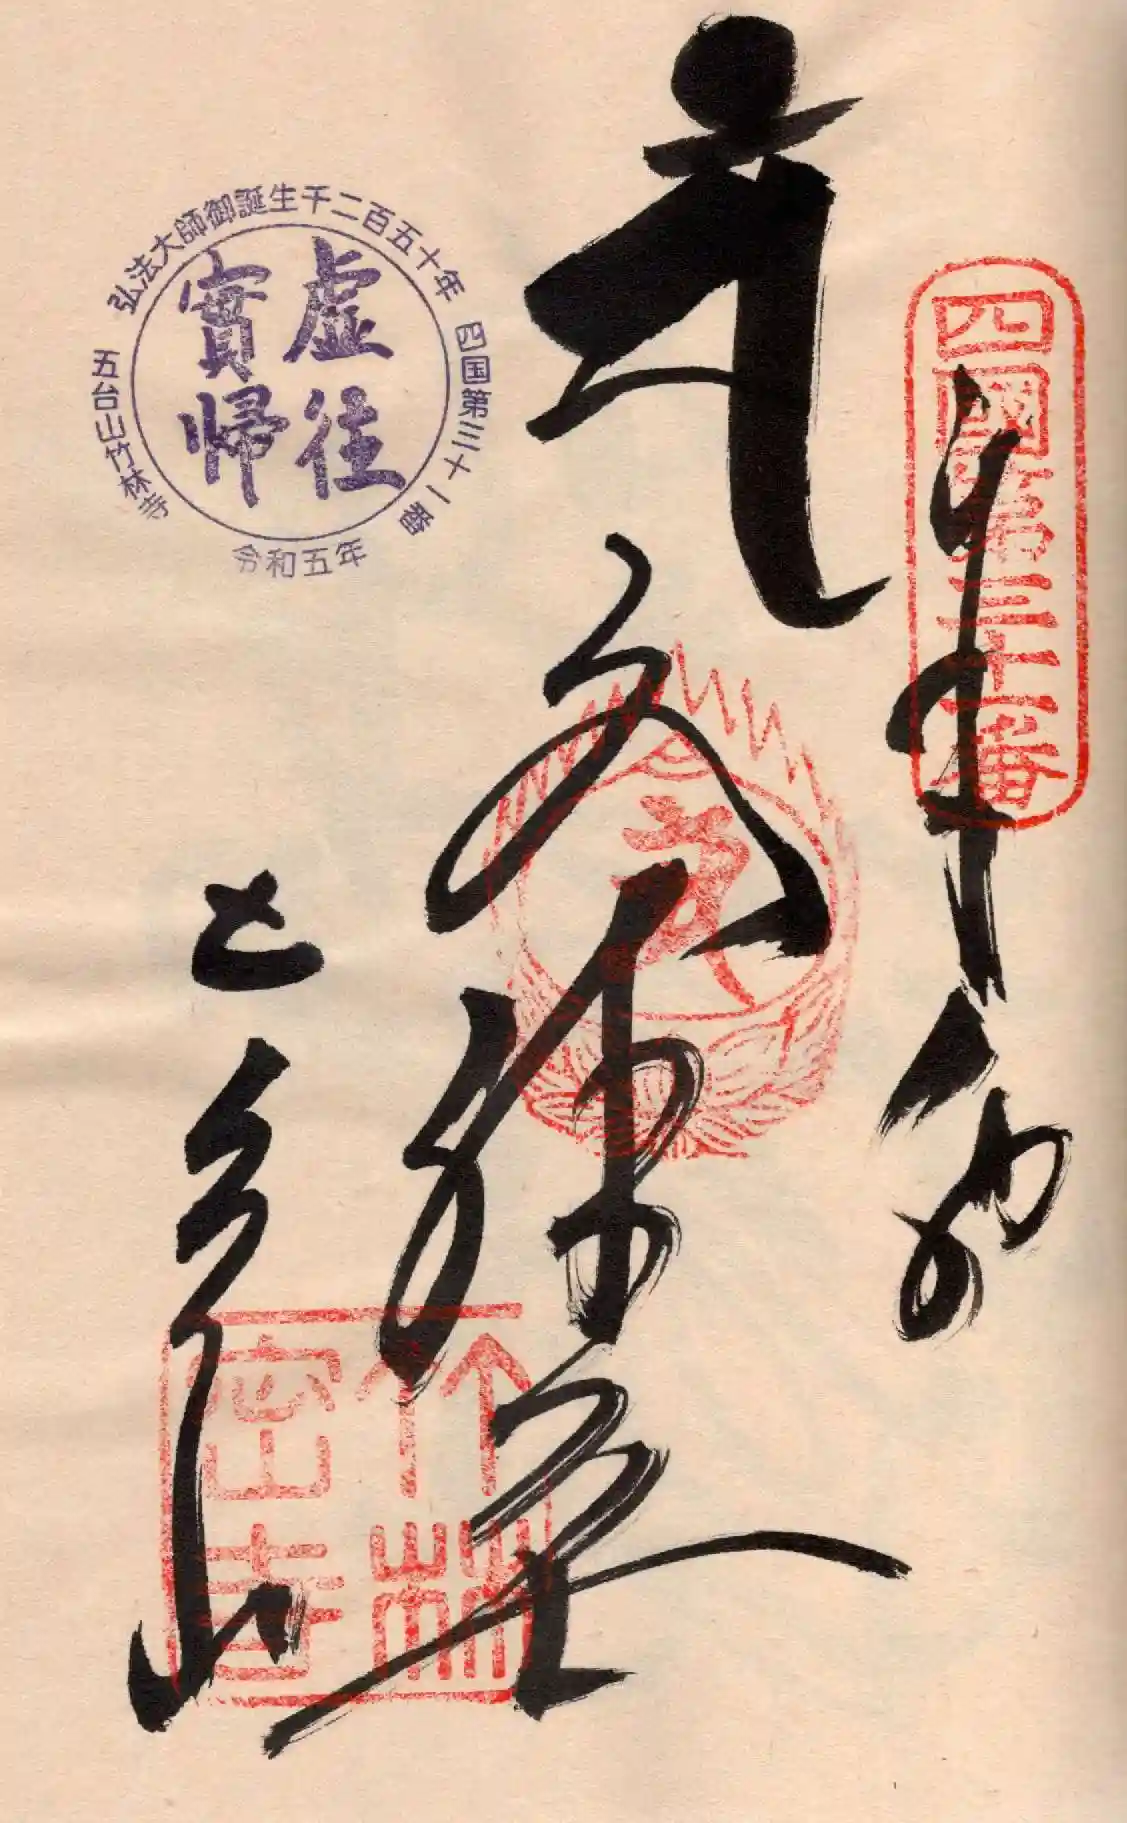 四國第三十一番
奉納
文殊堂
五台山
竹林
密寺
弘法大師御誕生千二百五十年
四国第三十一番
虚往
實歸
五台山竹林寺
令和五年